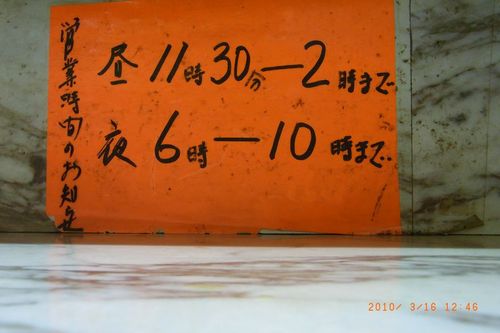 営業時間のお知らせ
昼 11時30分－2時まで.
夜 6時－10時まで.
2010/ 3/16 12:46